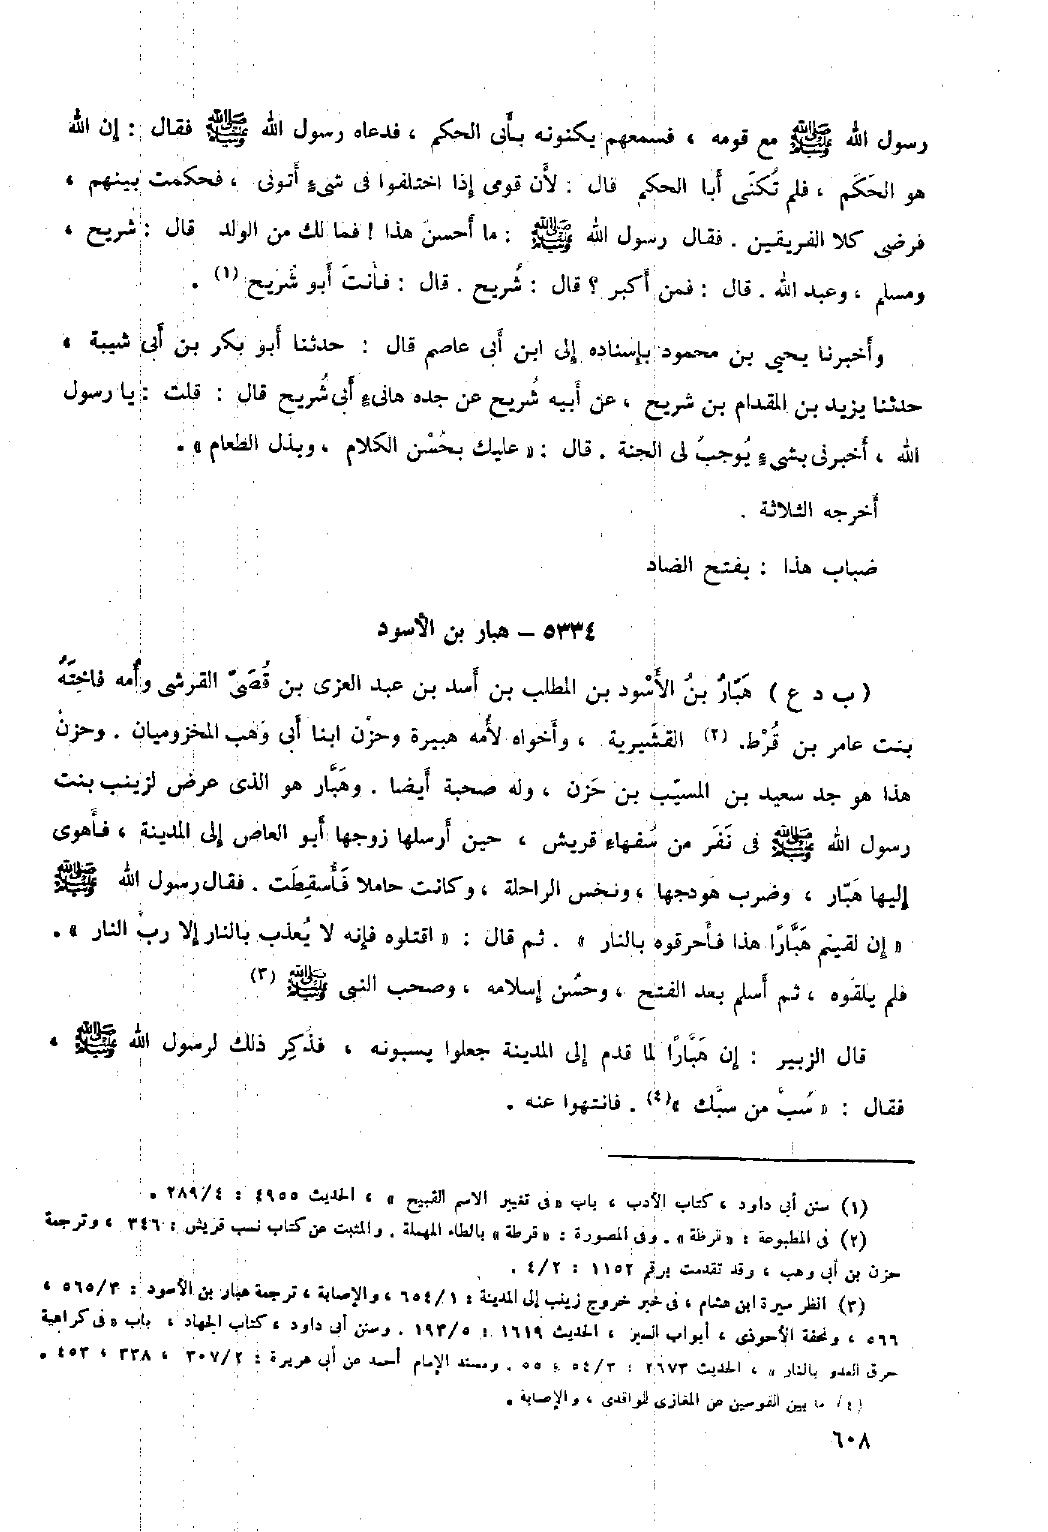 رسول الله ﷺ مع قومه ، فسمعهم يكنونه بأَبى الحكم ، فدعاه رسول الله ﷺ فقال : إن الله
هو الحَكَم ، فلم تُكنَى أَبا الحكم قال : لأَن قومى إذا اختلفوا فى شىءٍ أَتونى ، فحكمت بينهم ،
فرضى كلا الفريقين . فقال رسول الله ﷺ : ما أَحسنَ هذا ! فما لك من الولد قال : شريح ،
ومسلم ، وعبد الله . قال : فمن أَكبر ؟ قال : شُريح . قال : فأَنتَ أَبو شُريح (١) .
وأَخبرنا يحيى بن محمود بإسناده إلى ابن أَبى عاصم قال : حدثنا أَبو بكر بن أَبى شيبة ،
حدثنا يزيد بن المقدام بن شريح ، عن أَبيه شُريح عن جده هانىءٍ أَبى شُريح قال : قلت : يا رسول
الله ، أَخبرنى بشىءٍ يُوجبُ لى الجنة . قال : « عليك بحُسْن الكلام ، وبذل الطعام » .
أَخرجه الثلاثة .
ضباب هذا : بفتح الضاد
٥٣٣٤ – هبار بن الأسود
( ب د ع ) هَبّارُ بنُ الأَسْود بن المطلب بن أَسد بن عبد العزى بن قُصَىّ القرشى وأُمه فاخِتَةُ
بنت عامر بن قُرْط. (٢) القشَيرية ، وأَخواه لأُمه هبيرة وحزْن ابنا أَبى وَهب المخزوميان . وحزنْ
هذا هو جد سعيد بن المسيّب بن حَزن ، وله صحبة أَيضا . وهَبَّار هو الذى عرض لزينب بنت
رسول الله ﷺ فى نَفَر من سُفهاءِ قريش ، حين أَرسلها زوجها أَبو العاص إلى المدينة ، فأَهوى
إليها هَبّار ، وضرب هودجها ، ونخس الراحلة ، وكانت حاملا فَأَسقِطَت . فقال رسول الله ﷺ
« إن لقيتم هَبَّارًا هذا فأَحرقوه بالنار » . ثم قال : « اقتلوه فإنه لا يُعذب بالنار إلا ربّ النار » .
فلم يلقوه ، ثم أَسلم بعد الفتح ، وحسُن إسلامه ، وصحب النبى ﷺ (٣)
قال الزبير : إن هَبَّارًا لما قدم إلى المدينة جعلوا يسبونه ، فذُكِر ذلك لرسول الله ﷺ ،
فقال : « سُبّ من سبَّك »(٤) . فانتهوا عنه .
(١) سنن أبى داود ، كتاب الأدب ، باب « فى تغيير الاسم القبيح » ، الحديث ٤٩٥٥ : ٢٨٩/٤ .
(٢) فى المطبوعة : « قرظة » . وفى المصورة : « قرطة » بالطاء المهملة . والمثبت عن كتاب نسب قريش : ٣٤٦ ، وترجمة
حزن بن أبى وهب ، وقد تقدمت برقم ١١٥٢ : ٤/٢ .
(٣) انظر سيرة ابن هشام ، فى خبر خروج زينب إلى المدينة : ٦٥٤/١ ، والإصابة ، ترجمة هبار بن الأسود : ٥٦٥/٣ ،
٥٦٦ ، وتحفة الأحوذى ، أبواب السير ، الحديث ١٦١٩ : ١٩٣/٥ . وسنن أبى داود ، كتاب الجهاد ، باب « فى كراهية
حرق العدو بالنار » ، الحديث ٢٦٧٣ : ٥٤/٣ ، ٥٥ . ومسند الإمام أحمد عن أبى هريرة : ٣٠٧/٢ ، ٣٣٨ ، ٤٥٣ .
(٤) ما بين القوسين عن المغازى للواقدى ، والإصابة .
٦٠٨